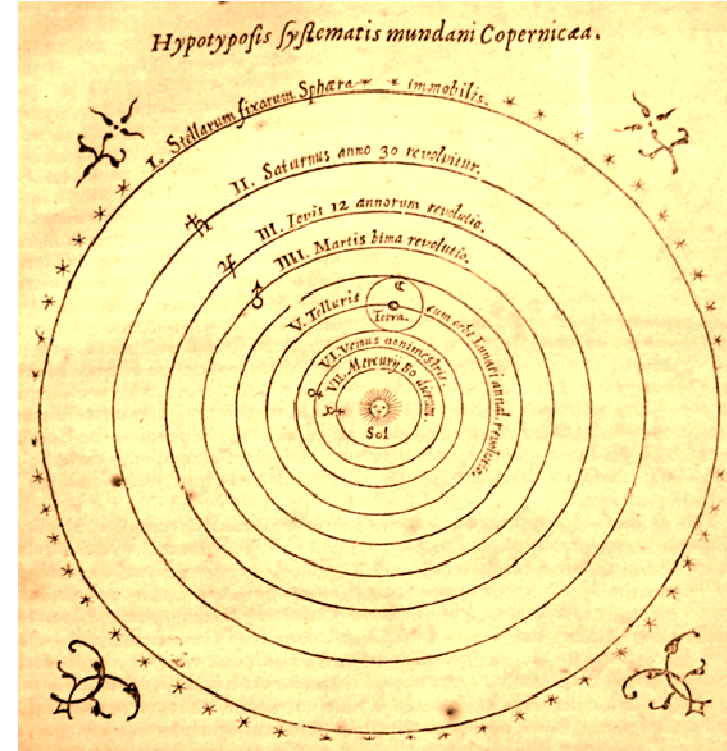 Hypotypoſis ſyſtematis mundani Copernicæa.
I. Stellarum fixarum Sphæra immobilis.
II. Saturnus anno 30 revolvitur.
III. Iovis 12 annorum revolutio.
IIII. Martis bima revolutio.
V. Telluris cum orbe Lunari annal. revolutio.
Terra.
VI. Venus nonimestris.
VII. Mercurij 80 dierum.
Sol